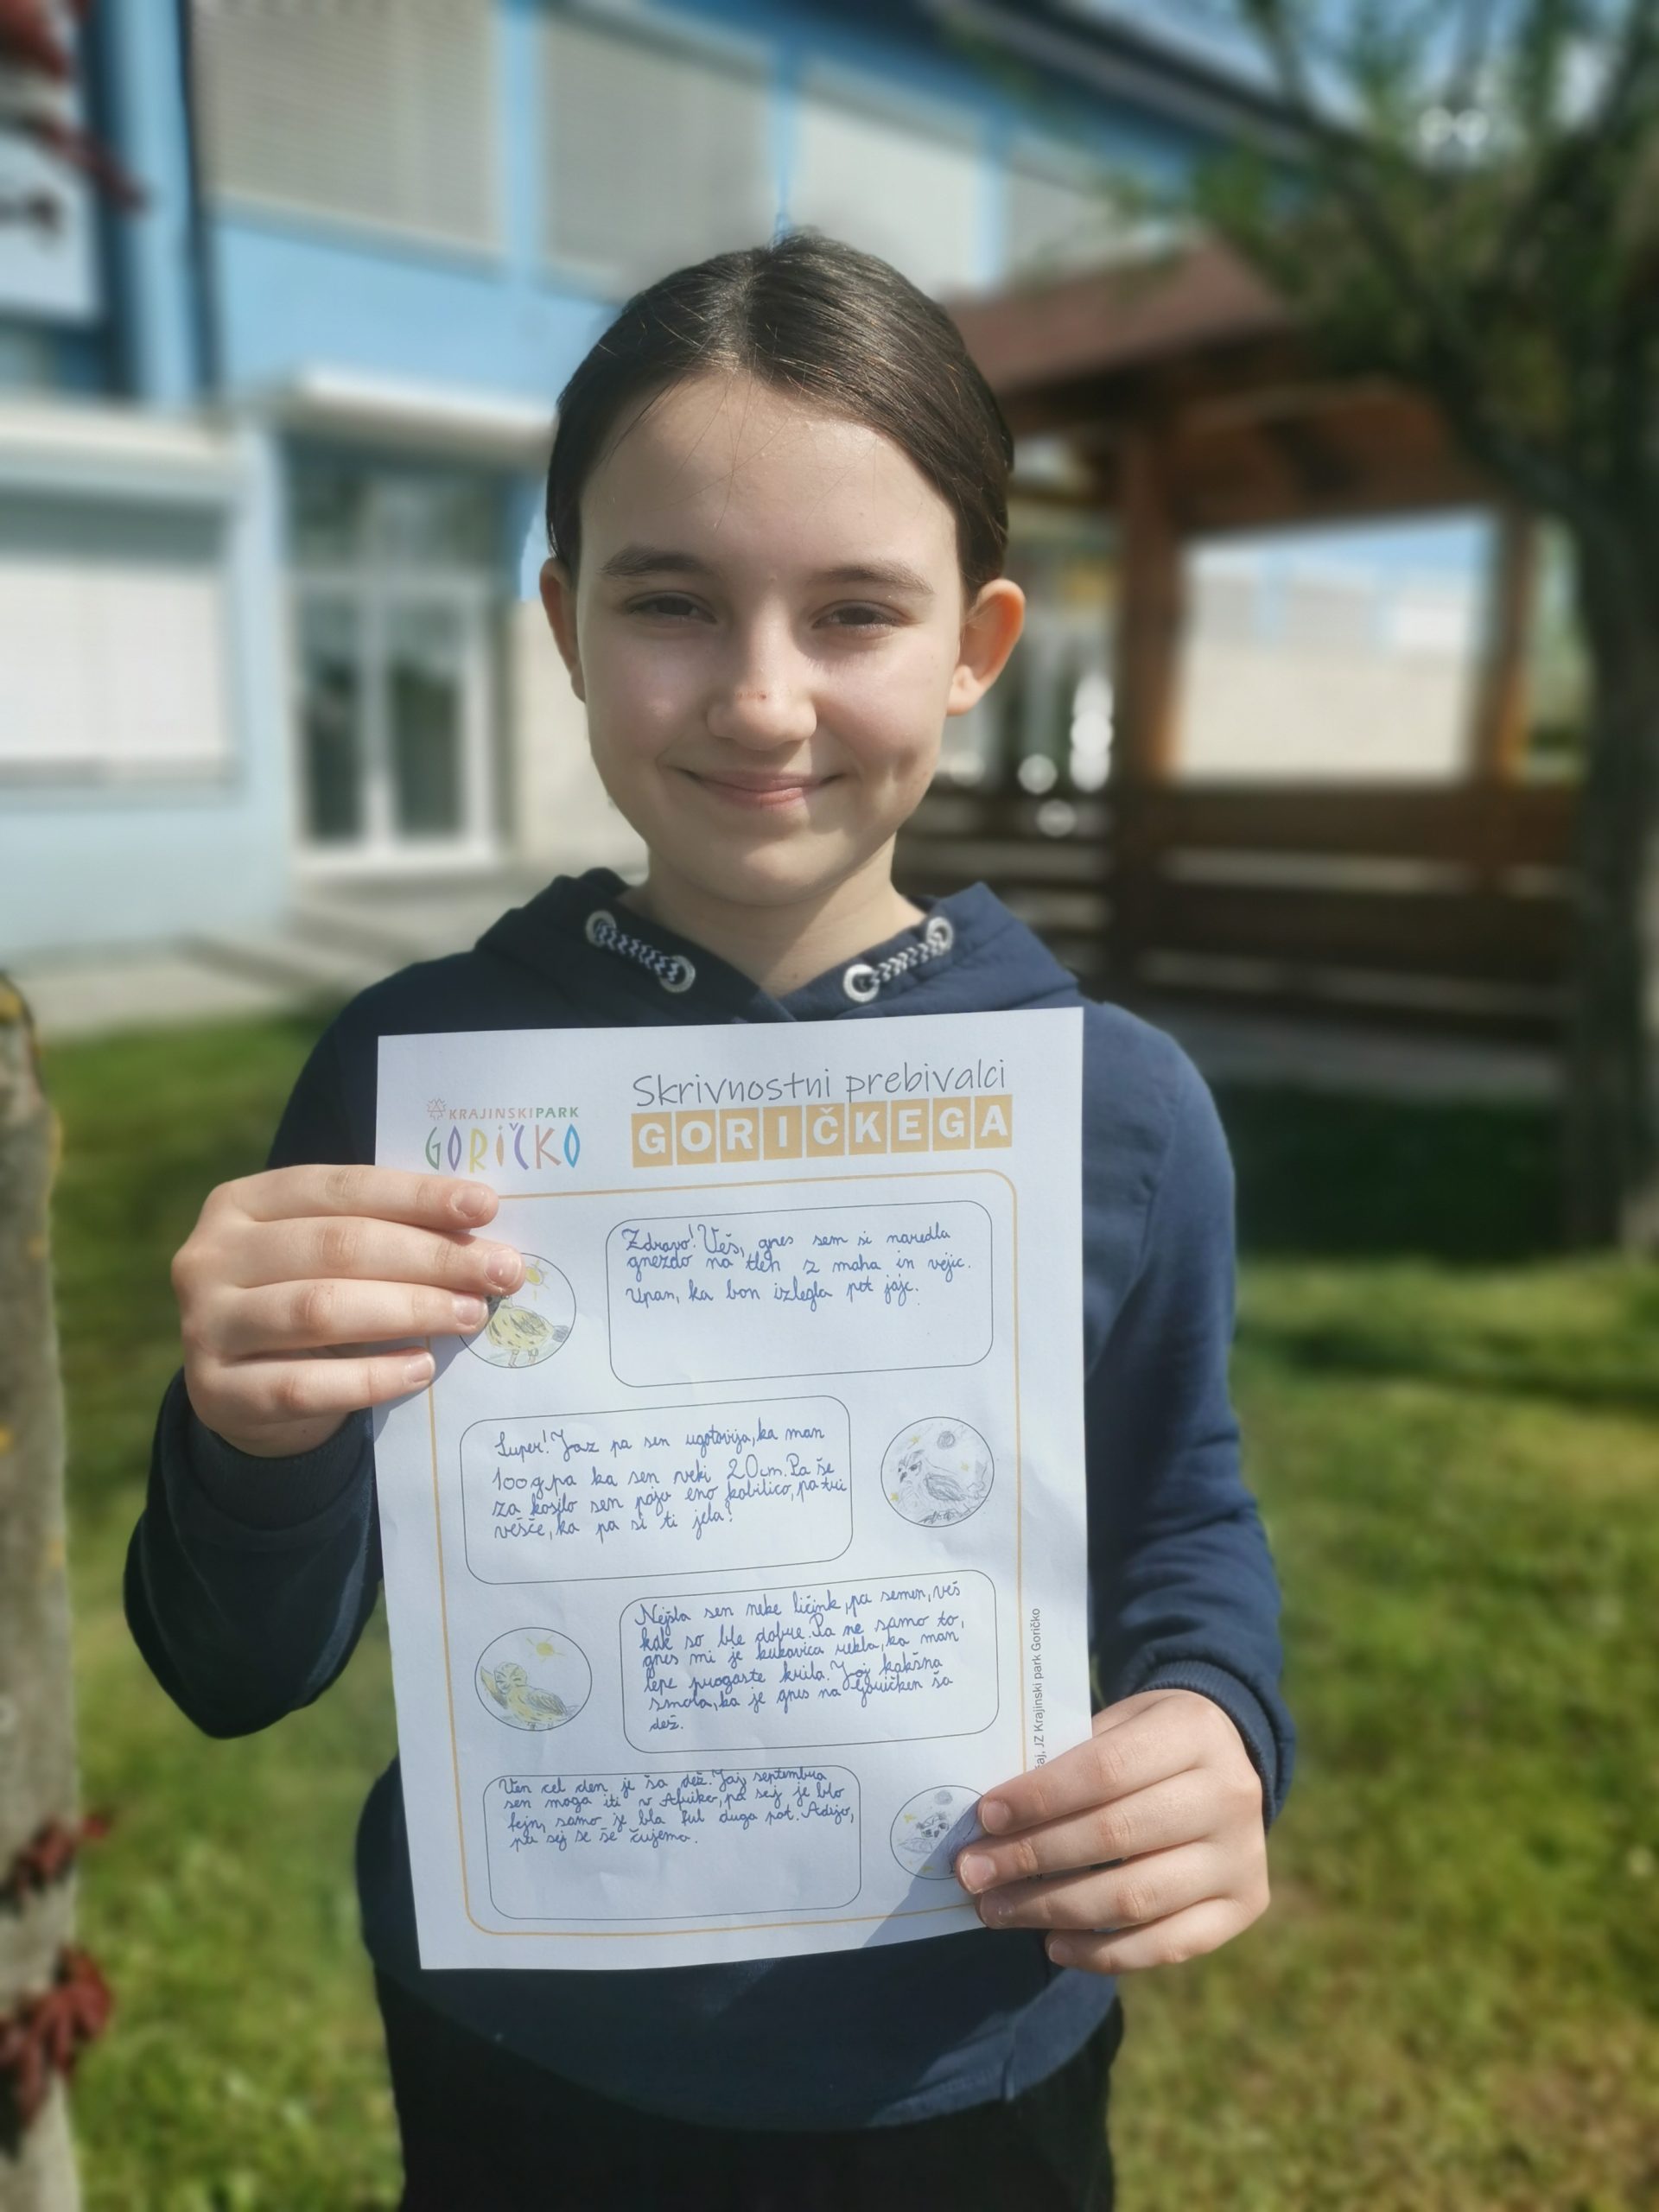 KRAJINSKIPARK
GORIČKO
Skrivnostni prebivalci
GORIČKEGA
Zdravo! Veš, gnes sem si naredla
gnezdo na tleh z maha in vejic.
Upan, ka bon izlegla pet jajc.
Super! Jaz pa sen ugotovija, ka man
100g pa ka sen veki 20cm. Pa še
za kosilo sen pojo eno kobilico, pa tri
vešče, ka pa si ti jela?
Nejšla sen neke ličink, pa semen, veš
kak so ble dobre. Pa ne samo to,
gnes mi je kukavica rekla, ka man
lepe progaste krila. Joj kakšna
smola, ka je gnes na Goričken ša
dež.
Ven cel den je ša dež. Jaz septembra
sen moga iti v Afriko, pa sej je blo
fejn, samo je bla ful duga pot. Adijo,
pa sej se še čujemo.
aj, JZ Krajinski park Goričko